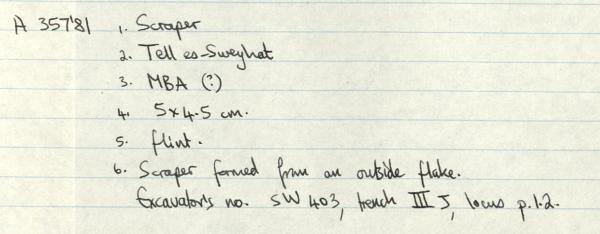 A 357'81 1. Scraper
2. Tell es-Sweyhat
3. MBA (?)
4. 5x4.5 cm.
5. flint.
6. Scraper formed from an outside flake.
Excavator's no. SW 403, trench III J, locus p.1.2.